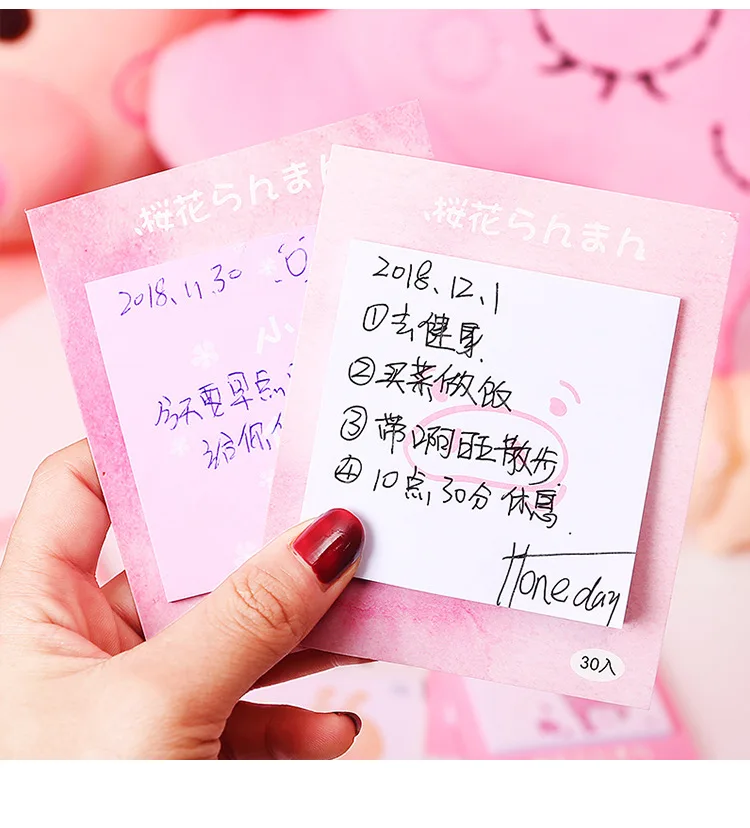 桜花らんまん
2018.11.30
小
今天要早点
给你
桜花らんまん
2018.12.1
①去健身
②买菜做饭
③带啊旺散步
④10点30分休息
Honeday
30入